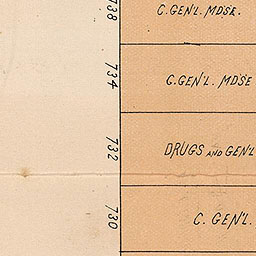 738 C. GEN'L. MDSE.
734 C. GEN'L. MDSE
732 DRUGS AND GEN'L
730 C. GEN'L.